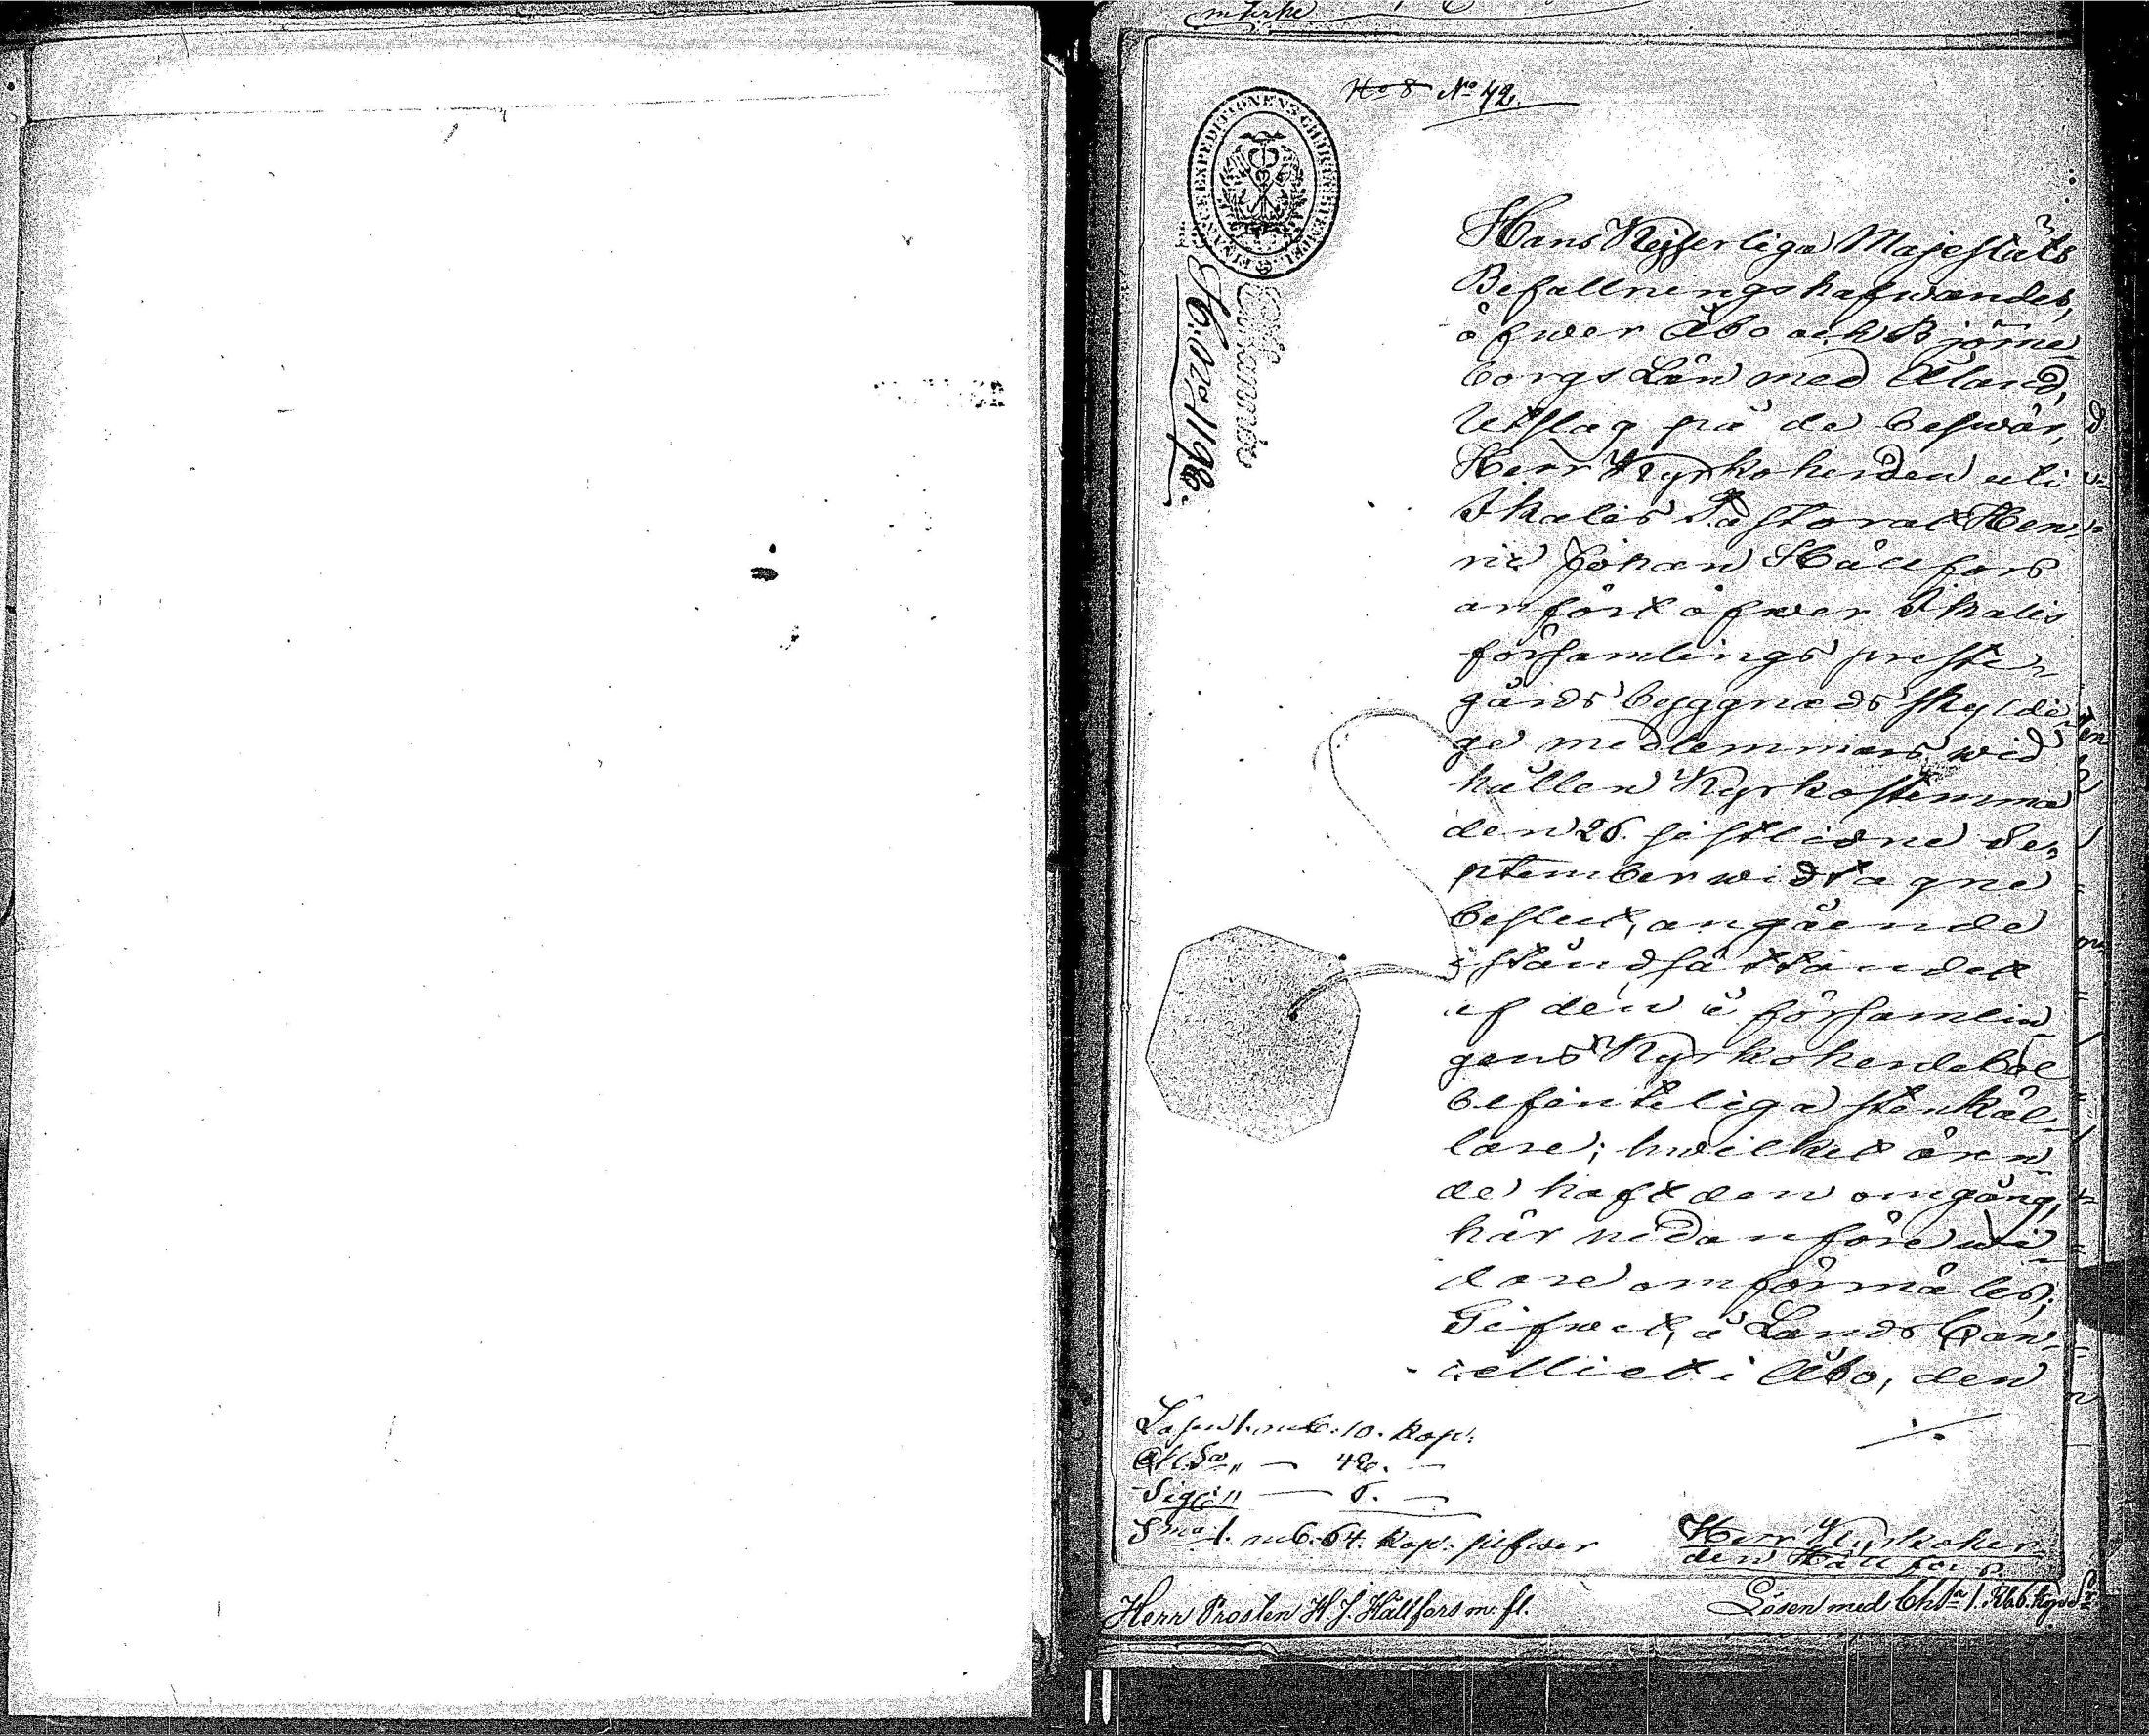 No 8 No 42.
FINANCE EXPEDITIONENS CHARTÆ STEMPEL
Hans Kejserliga Majestäts
Befallningshafwandes,
öfwer Åbo och Björne-
borgs Län med Åland,
Utslag på de beswär,
Herr Kyrkoherden uti
Ikalis Pastorat Hen-
ric Johan Hällfors
anfört öfwer Ikalis
församlings preste-
gårds byggnads skyldi-
ge medlemmars wid
hållen Kyrkostemma
den 26. sistlidne Se-
ptember widtagne
beslut, angående
iståndsättandet
af den å församlin-
gens Kyrkoherdebol
befinteliga stenkäl-
lare; hwilket ären-
de haft den omgång,
här nedanföre wi-
dare omförmäles;
Gifwet, å Lands Can-
celliet i Åbo, den
Lösen 1. rub. 10. Kop:
48.
Sigill 6.
Sma 1. rub. 64. Kop: silfwer
Herr Kyrkoher-
den Hällfors.
Herr Prosten H. J. Hällfors m. fl.
Lösen med 1. Rub. 6. Kop.